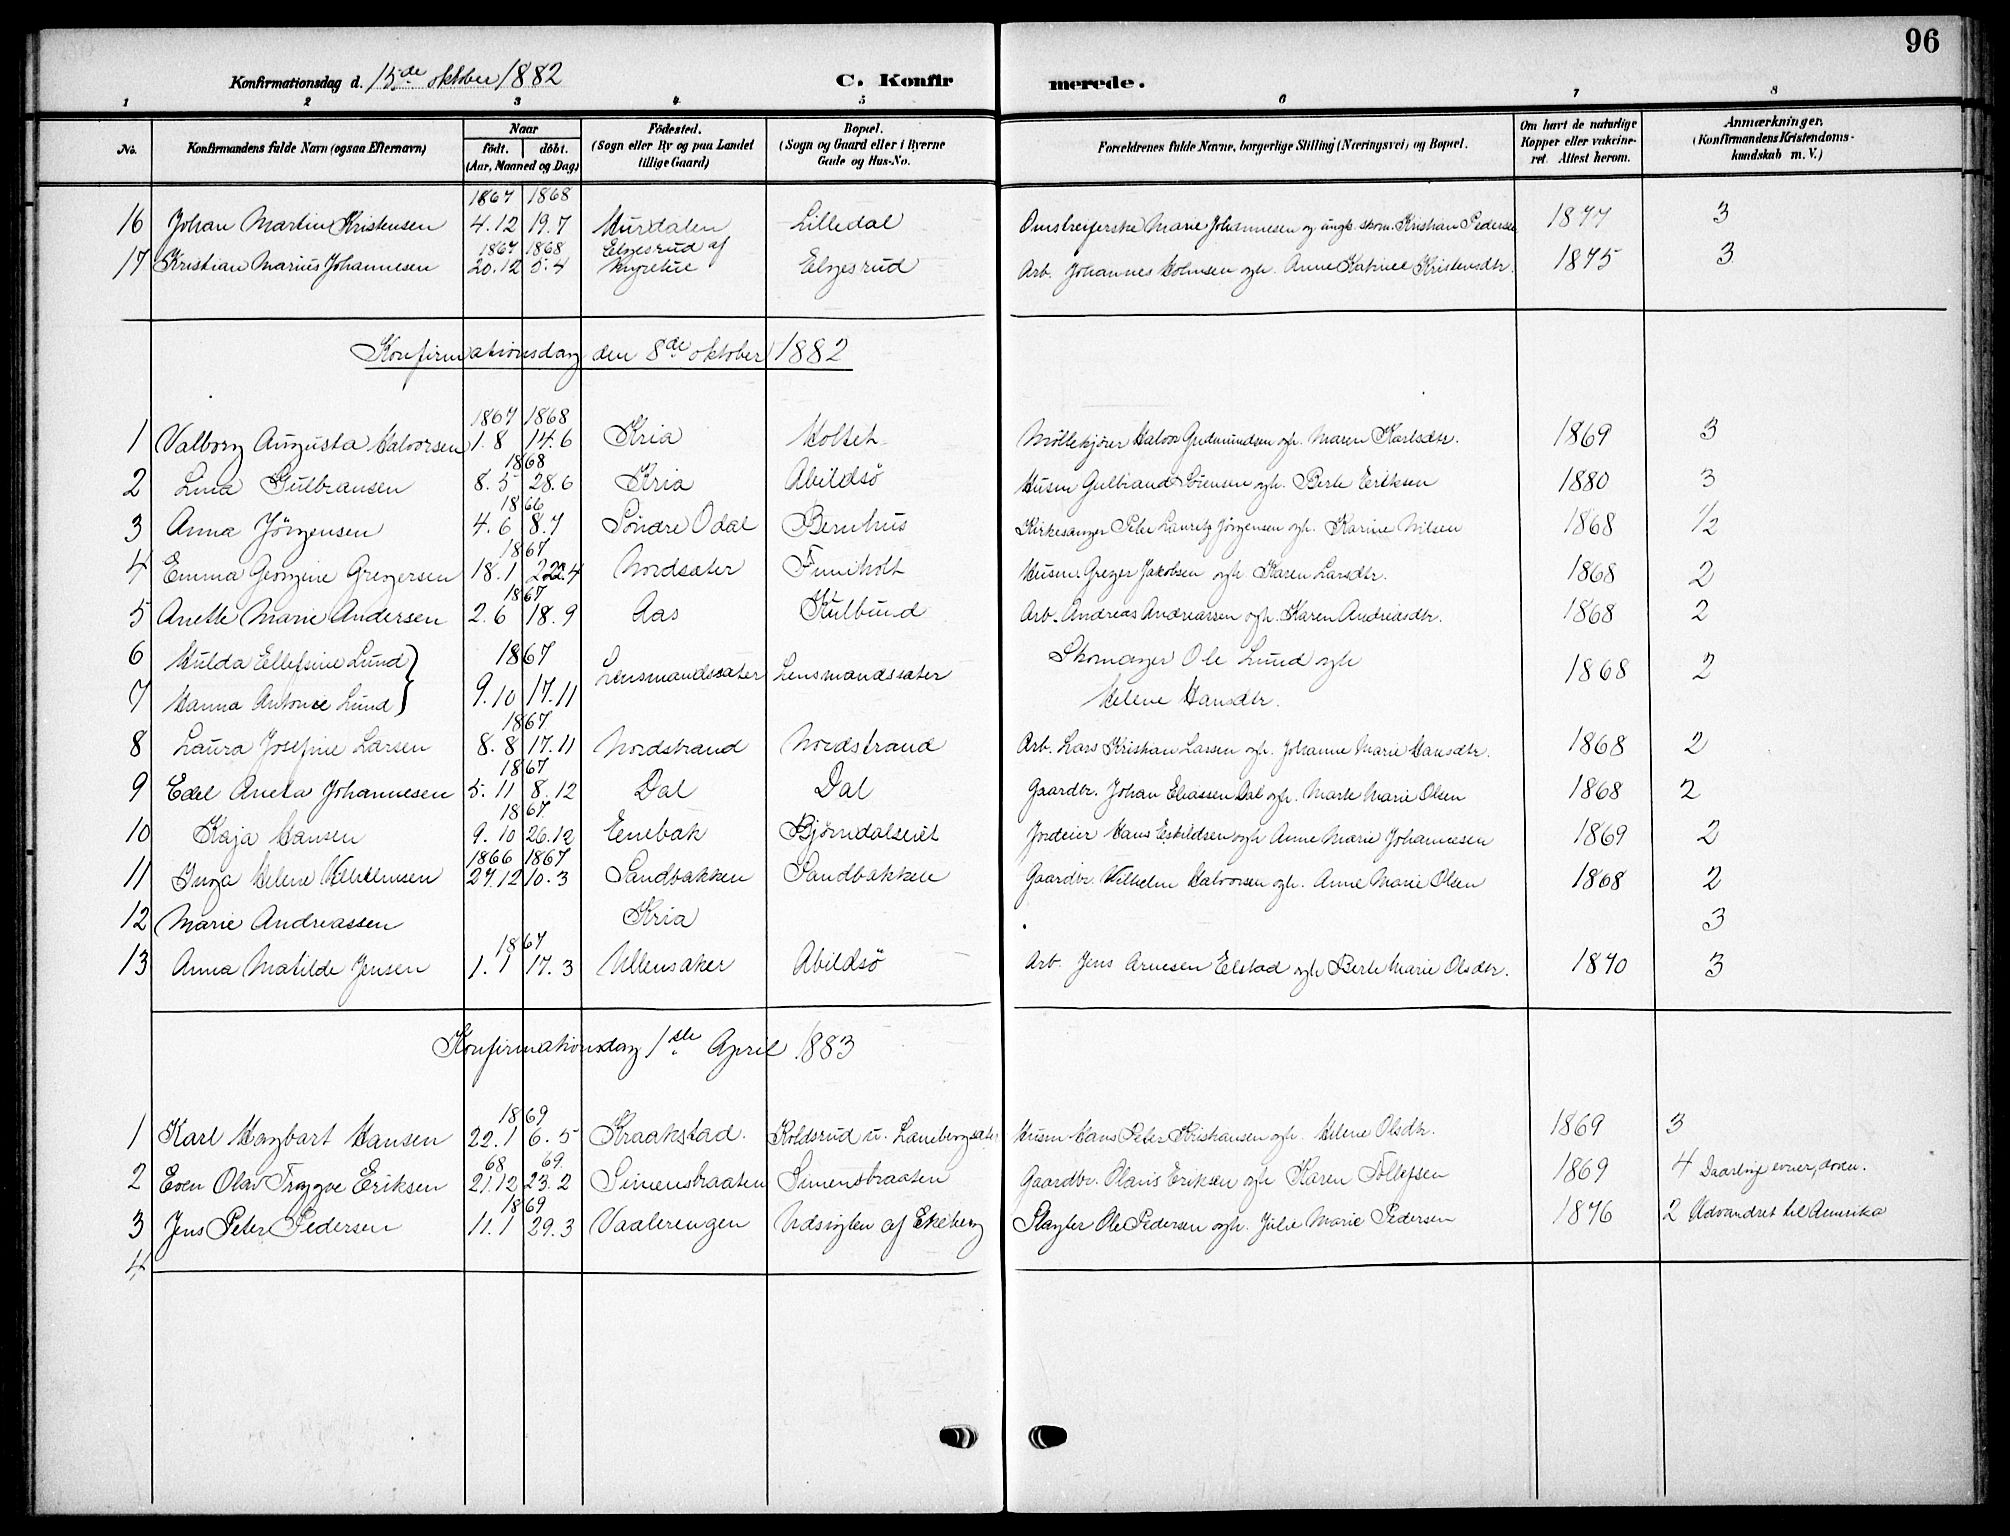 96
Konfirmationsdag d. 15de oktober 1882 C. Konfirmerede.
1 2 3 4 5 6 7 8
No. Konfirmandens fulde Navn (ogsaa Efternavn) Naar født. døbt. (Aar, Maaned og Dag) Fødested. (Sogn eller By og paa Landet tillige Gaard) Bopæl. (Sogn og Gaard eller i Byerne Gade og Hus-No. Forældrenes fulde Navne, borgerlige Stilling (Næringsvei) og Bopæl. Om havt de naturlige Kopper eller vakcineret. Attest herom. Anmærkninger. (Konfirmandens Kristendomskundskab m. V.)
1867 1868
16 Johan Martin Kristensen 4.12 19.7 Hurdalen Lilledal Marie Johannesen og ungk. skom. Kristian Pedersen 1877 3
1867 1868 Elgesrud af
17 Kristian Marius Johannesen 20.12 5.4 Myretue Elgesrud Arb. Johannes Holmsen ogh. Anne Katrine Kristensdtr. 1875 3
Konfirmationsdag den 8de oktober 1882
1867 1868
1 Valborg Augusta Halvorsen 1.8 14.6 Kria Holtet Møllekjører Halvor Gudmundsen ogh. Maren Karlsdtr. 1869 3
1868
2 Lina Gulbransen 8.5 28.6 Kria Abildsø Husm Gulbrand Sørensen ogh. Berte Eriksen 1880 3
1866
3 Anna Jørgensen 4.6 8.7 Søndre Odal Bernhus Kirkesanger Peter Lauritz Jørgensen ogh. Karine Nilsen 1868 1/2
1867
4 Emma Georgine Gregersen 18.1 22.4 Nordsæter Funiholt Husm. Greger Jakobsen ogh Karen Larsdtr. 1868 2
1867
5 Anette Marie Andersen 2.6 18.9 Aas Kulbund Arb. Andreas Andreassen ogh. Karen Andreasdtr. 1868 2
6 Hulda Ellefsine Lund 1867 Lensmandssæter Lensmandssæter Skomager Ole Lund ogh 1868 2
7 Hanna Antonie Lund 9.10 17.11 Helene Hansdtr.
1867
8 Laura Josefine Larsen 8.8 17.11 Nordstrand Nordstrand Arb. Lars Kristian Larsen ogh. Johanne Marie Hansdtr. 1868 2
1867
9 Edel Aneta Johannesen 5.11 8.12 Dal Dal Gaardbr. Johan Eliassen Dal ogh. Marte Marie Olsen 1868 2
1867
10 Kaja Hansen 9.10 26.12 Enebak Bjørndalseiet Jordeier Hans Eskildsen ogh Anne Marie Johannesen 1869 2
1866 1867
11 Inga Helene Vilhelmsen 27.12 10.3 Sandbakken Sandbakken Gaardbr. Vilhelm Halvorsen ogh. Anne Marie Olsen 1868 2
12 Marie Andreassen Kria 3
1867
13 Anna Matilde Jensen 1.1 17.3 Ullensaker Abildsø Arb. Jens Arnesen Elstad ogh Berte Marie Olsdtr. 1870 3
Konfirmationsdag 1ste April 1883
1869
1 Karl Hagbart Hansen 22.1 6.5 Kraakstad. Koldsrud u. Husm Hans Peter Kristiansen ogh. Helene Olsdtr. 1869 3
68 69
2 Even Olav Trygve Eriksen 21.12 23.2 Simensbraaten Simensbraaten Gaardbr. Olaus Eriksen ogh Karen Tollefsen 1869 4 Daarlige evner, doven.
1869
3 Jens Peter Pedersen 11.1 29.3 Vaalerengen Udsigten af Ekeberg Slagter Ole Pedersen ogh. Julie Marie Pedersen 1876 2 Udvandret til Amerika
4